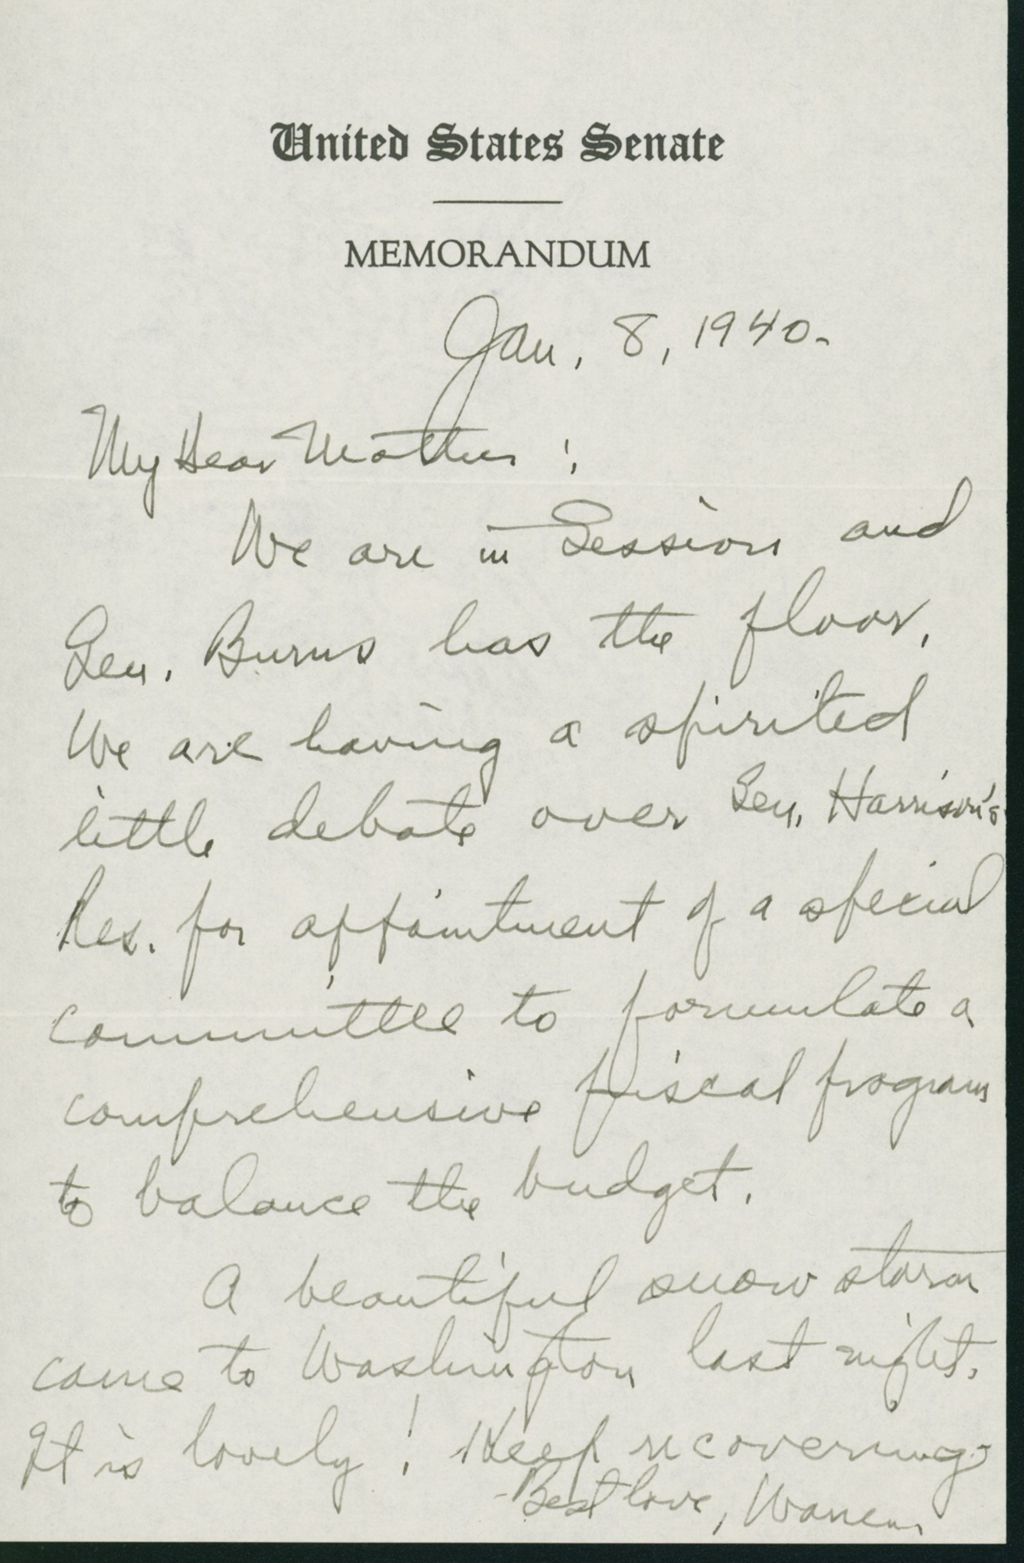 United States Senate
MEMORANDUM
Jan. 8, 1940.
My Dear Mother:
We are in Session and
Sen. Burns has the floor.
We are having a spirited
little debate over Sen. Harrison's
Res. for appointment of a special
committee to formulate a
comprehensive fiscal program
to balance the budget.
A beautiful snow storm
came to Washington last night.
It is lovely! Keep recovering.
Best love, Warren.